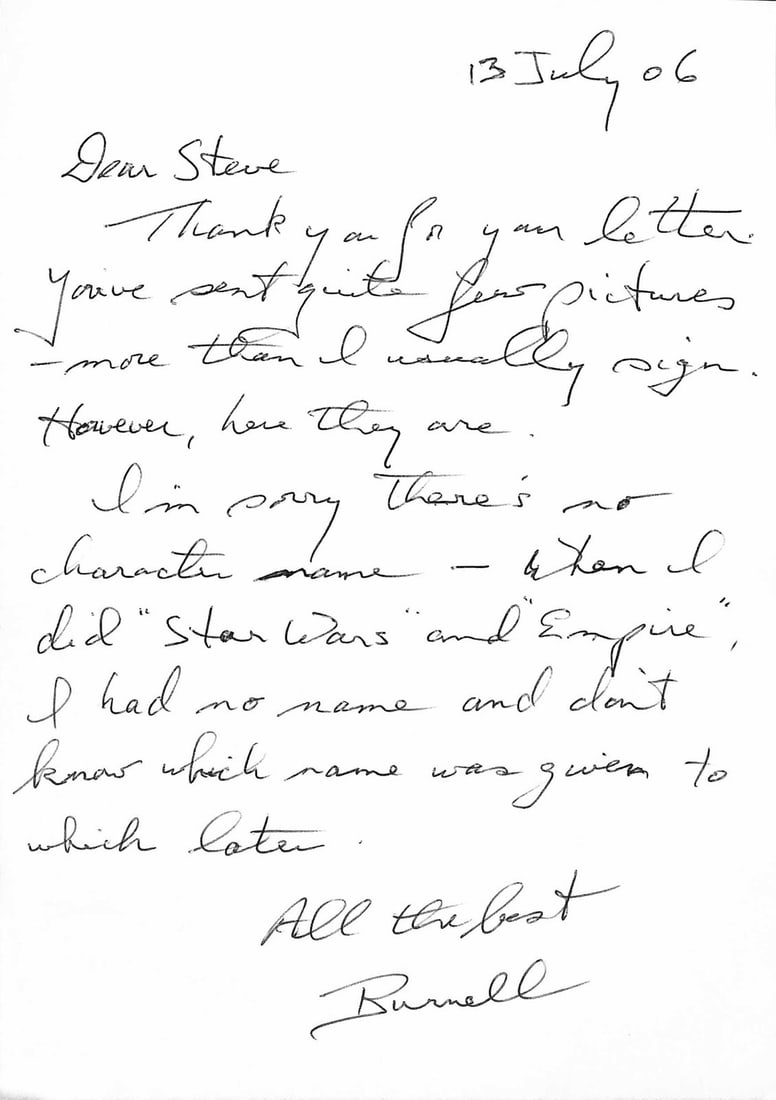 13 July 06
Dear Steve
Thank you for your letter.
You've sent quite few pictures
– more than I usually sign.
However, here they are.
I'm sorry there's no
character name – when I
did "Star Wars" and "Empire",
I had no name and don't
know which name was given to
which later.
All the best
Burnell